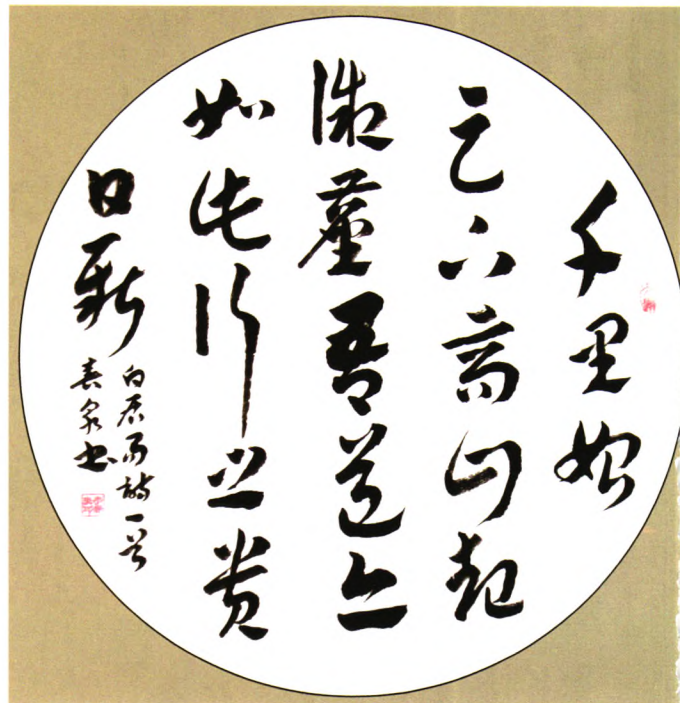 千里始
足下高山起
微塵吾道亦
如此行之貴
日新
白居易詩一首
泉書